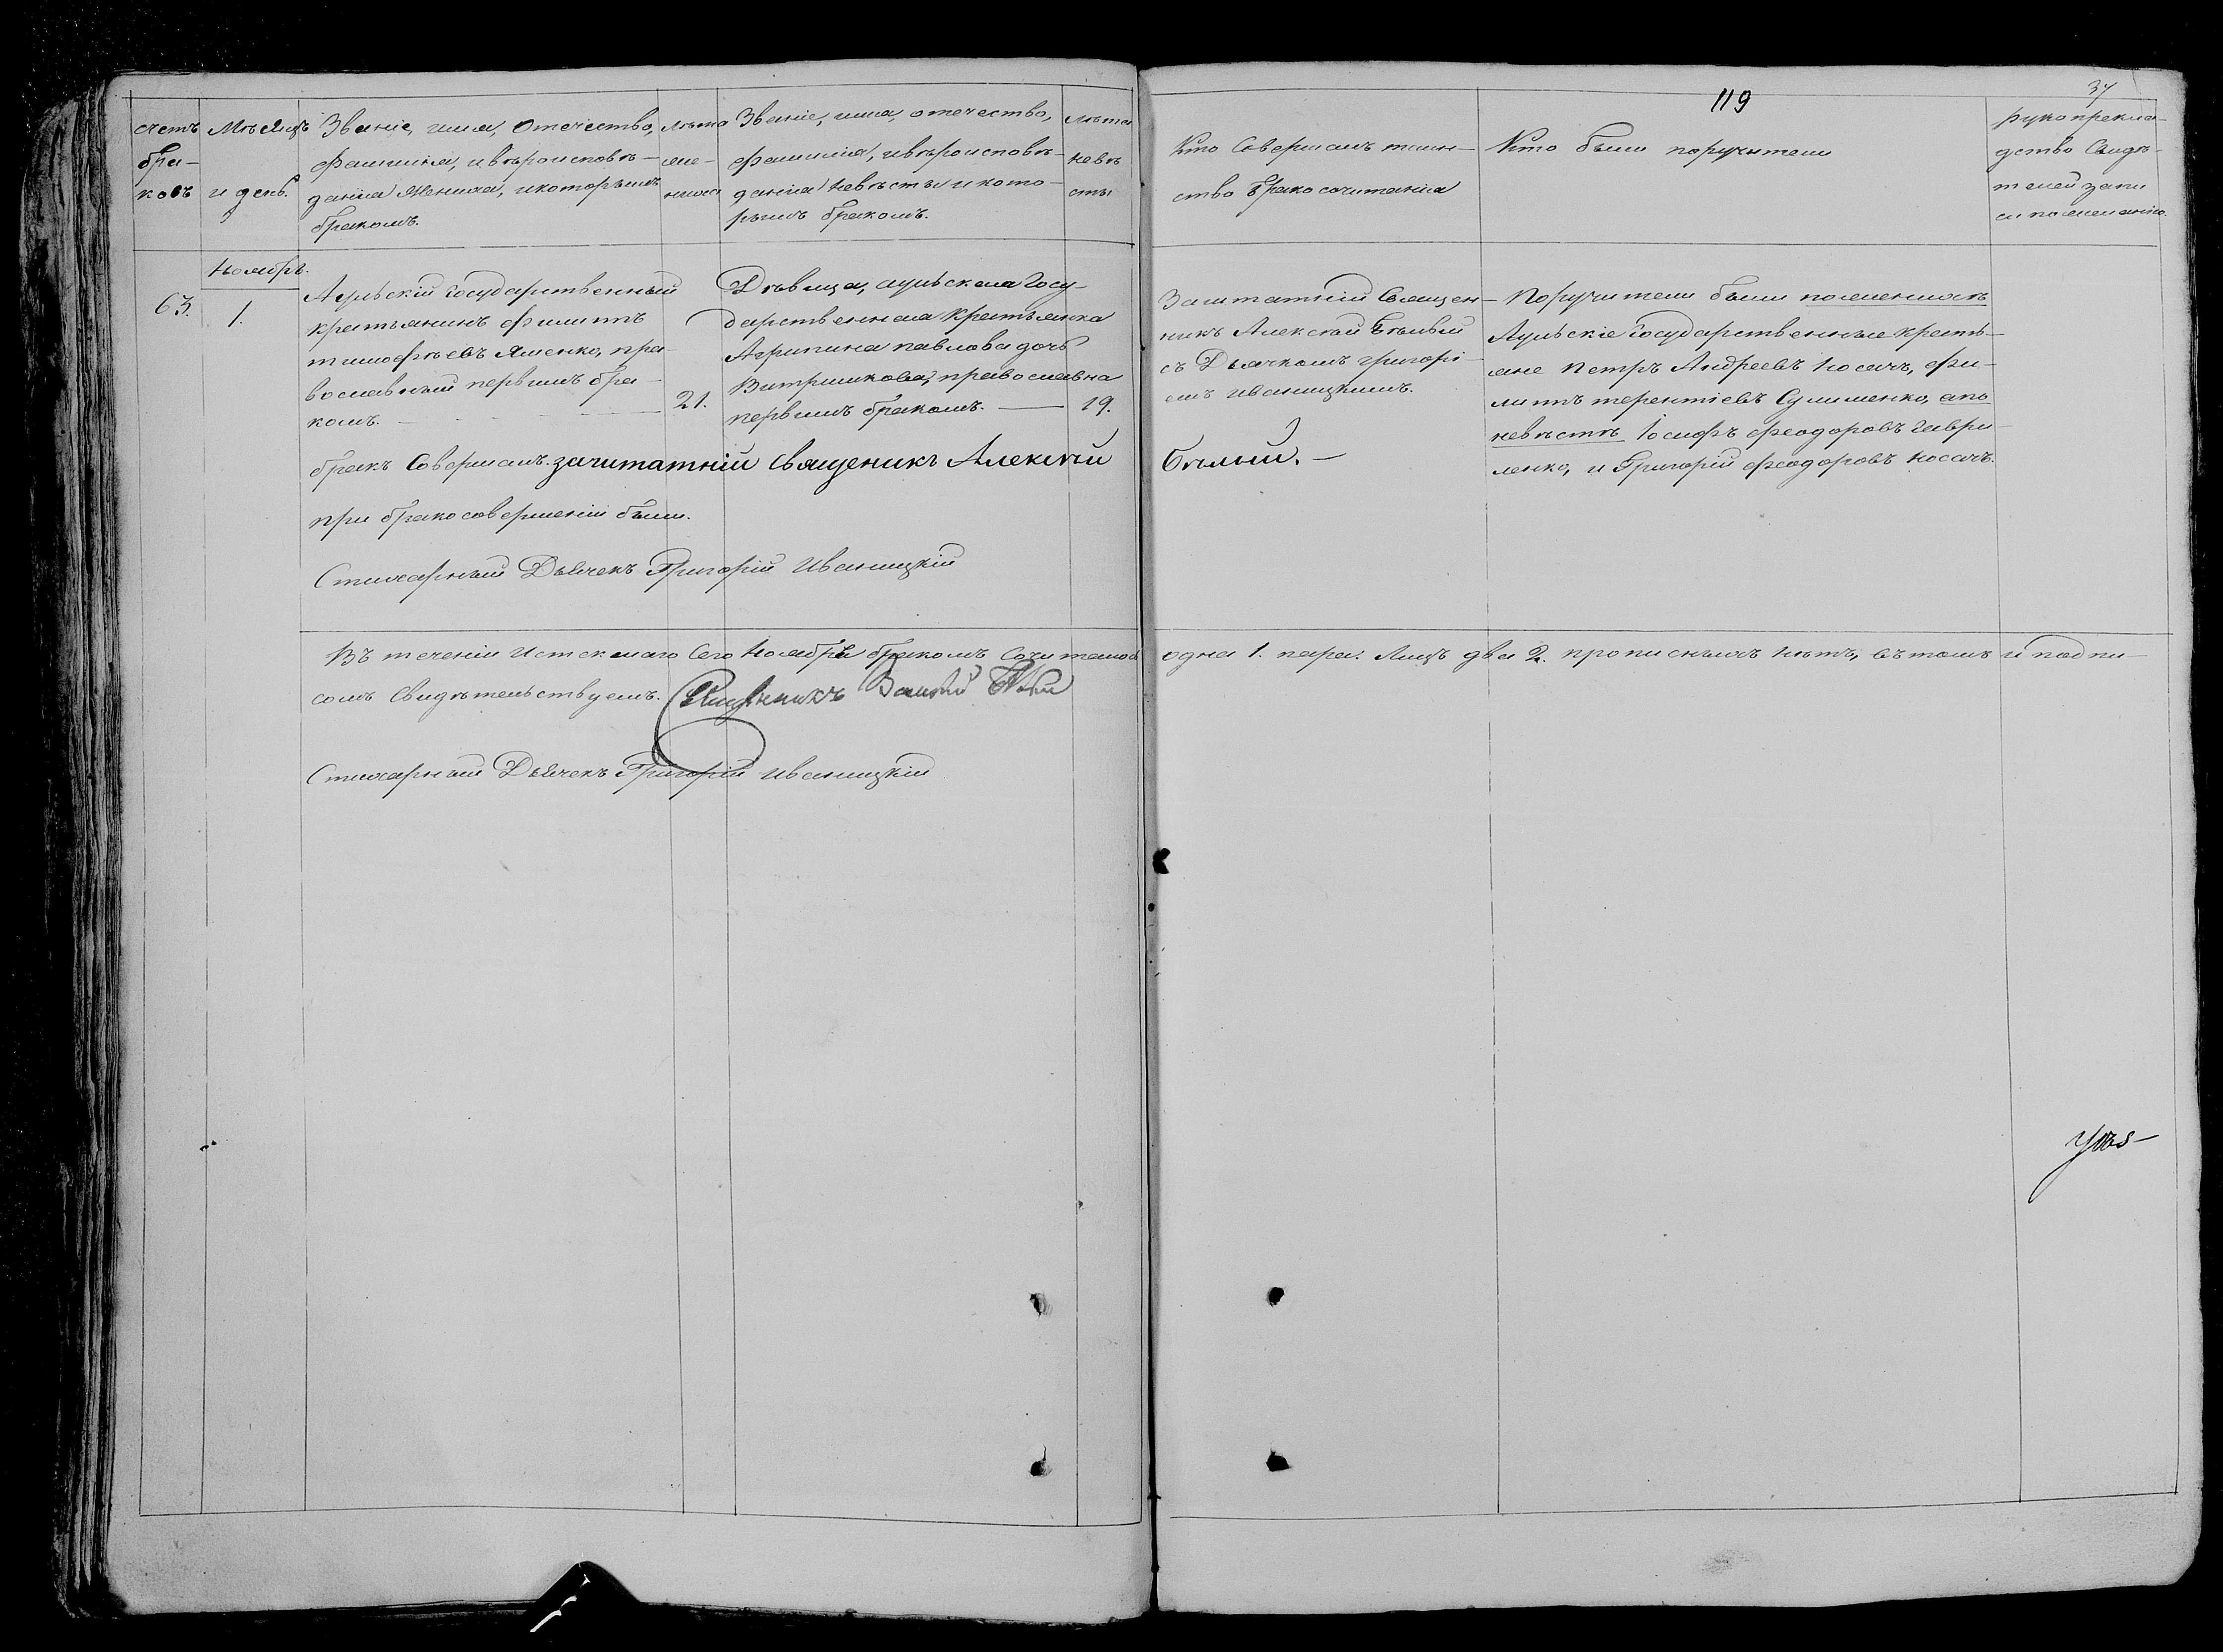 119
37
счетъ бра-
ковъ
Мѣсяцъ
и день.
Званіе, имя, отечество,
фамилія, и вѣроисповѣ-
данія жениха, и которымъ
бракомъ.
Лѣта
же-
ниха
Званіе, имя, отечество,
фамилія, и вѣроисповѣ-
данія невѣсты и кото-
рымъ бракомъ.
Лѣта
невѣ
сты
Кто Совершалъ таин-
ство бракосочитанія
Кто были поручители
рукоприкла-
дство Свидѣ-
телей запи
си по желанію.
Ноябрь.
63.
1.
Аульскій государственный
крестьянинъ филиппъ
тимофѣевъ Яшенко, пра-
вославный первымъ бра-
комъ.
21.
Дѣвица, аульская Госу-
дарственная крестьянка
Агрипина павлова дочь
Витришкова, православна
первымъ бракомъ.
19.
Заштатній Священ-
никъ Алексѣй Бѣлый
съ Дьячкомъ григорі-
емъ иваницкимъ.
Поручители были по женихѣ
Аульскіе государственные кресть-
яне Петръ Андреевъ Носачъ, фи-
липпъ терентіевъ Сулименко, а по
невѣстѣ Іосифъ феодоровъ гаври-
ленко, и Григорій феодоровъ носачъ.
бракъ Совершалъ. заштатній Священикъ Алексѣй Бѣлый. —
при бракосовершеніи были.
Стихарный Дьячекъ Григорій Иваницкій
Въ теченіи Истекшаго Сего Ноября бракомъ Сочиталось одна 1. пара. Лицъ два 2. прописныхъ нѣтъ, въ томъ и подпи-
сомъ Свидѣтельствуемъ. Священникъ
Стихарный Дьячекъ Григорій иваницкій